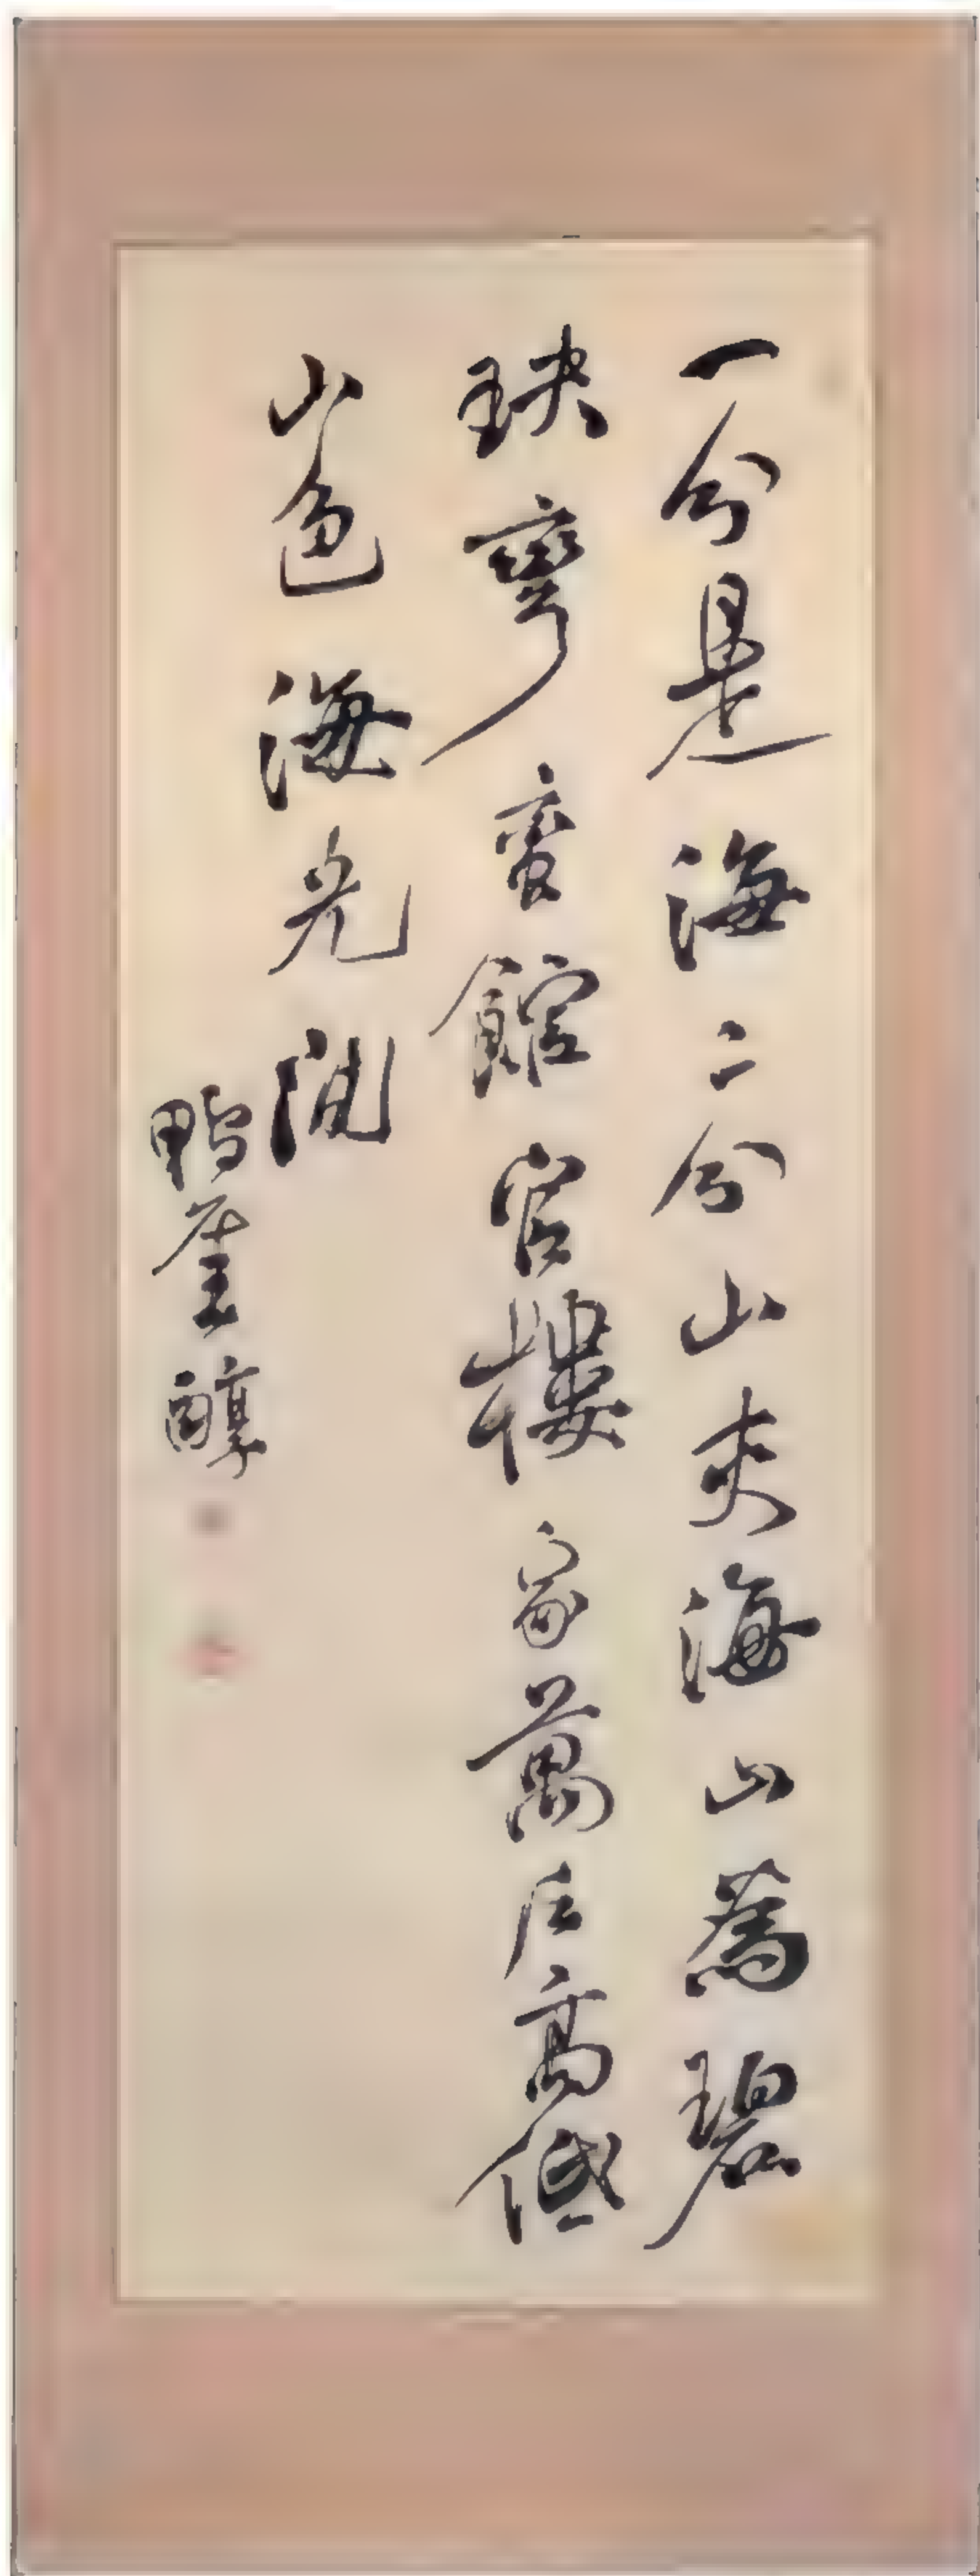 一分是海二分山夾海山為碧
玦彎蛮館官樓家萬戶高低
山色海光間
鴨厓醇